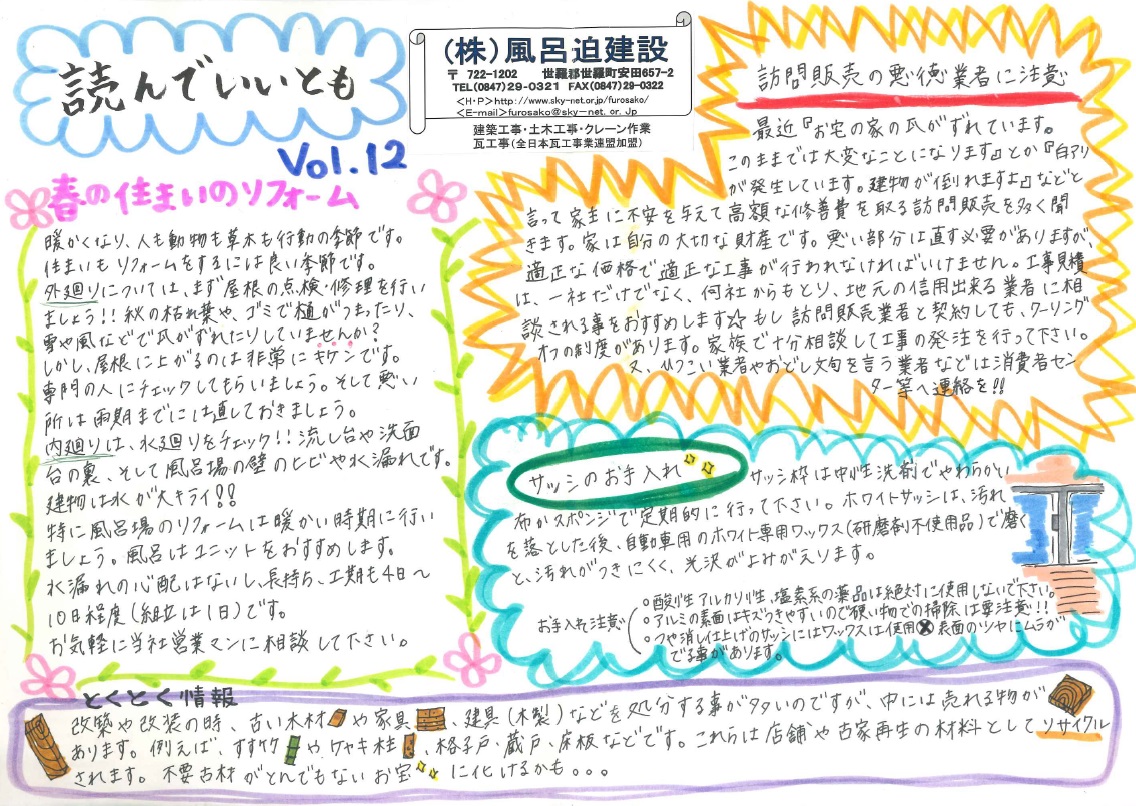 読んでいいとも
Vol.12
(株)風呂迫建設
〒 722-1202 世羅郡世羅町安田657-2
TEL(0847)29-0321 FAX(0847)29-0322
<H・P>http://www.sky-net.or.jp/furosako/
<E-mail>furosako@sky-net. or. Jp
建築工事・土木工事・クレーン作業
瓦工事(全日本瓦工事業連盟加盟)
春の住まいのリフォーム
暖かくなり、人も動物も草木も行動の季節です。
住まいもリフォームをするには良い季節です。
外廻りについては、まず屋根の点検・修理を行い
ましょう!!秋の枯れ葉や、ゴミで樋がうまったり、
雪や風などで瓦がずれたりしていませんか?
しかし、屋根に上がるのは非常にキケンです。
専門の人にチェックしてもらいましょう。そして悪い
所は雨期までには直しておきましょう。
内廻りは、水廻りをチェック!!流し台や洗面
台の裏、そして風呂場の壁のヒビや水漏れです。
建物は水が大キライ!!
特に風呂場のリフォームは暖かい時期に行い
ましょう。風呂はユニットをおすすめします。
水漏れの心配はないし、長持ち、工期も4日〜
10日程度(組立は1日)です。
お気軽に当社営業マンに相談して下さい。
訪問販売の悪徳業者に注意
最近『お宅の家の瓦がずれています。
このままでは大変なことになります』とか『白アリ
が発生しています。建物が倒れますよ』などと
言って家主に不安を与えて高額な修善費を取る訪問販売を多く聞
きます。家は自分の大切な財産です。悪い部分は直す必要がありますが、
適正な価格で適正な工事が行われなければいけません。工事見積
は、一社だけでなく、何社からもとり、地元の信用出来る業者に相
談される事をおすすめします☆もし訪問販売業者と契約しても、クーリング
オフの制度があります。家族で十分相談して工事の発注を行って下さい。
又、しつこい業者やおどし文句を言う業者などは消費者セン
ター等へ連絡を!!
サッシのお手入れ
サッシ枠は中性洗剤でやわらかい
布かスポンジで定期的に行って下さい。ホワイトサッシは、汚れ
を落とした後、自動車用のホワイト専用ワックス(研磨剤不使用品)で磨く
と、汚れがつきにくく、光沢がよみがえります。
お手入れ注意
○酸性アルカリ性、塩素系の薬品は絶対に使用しないで下さい。
○アルミの表面はキズつきやすいので硬い物での掃除は要注意!!
○つや消し仕上げのサッシにはワックスは使用✕表面のツヤにムラが
でる事があります。
とくとく情報
改築や改装の時、古い木材や家具、建具(木製)などを処分する事が多いのですが、中には売れる物が
あります。例えば、すす竹やケヤキ柱、格子戸・蔵戸・床板などです。これらは店舗や古家再生の材料としてリサイクル
されます。不要古材がとんでもないお宝に化けるかも。。。